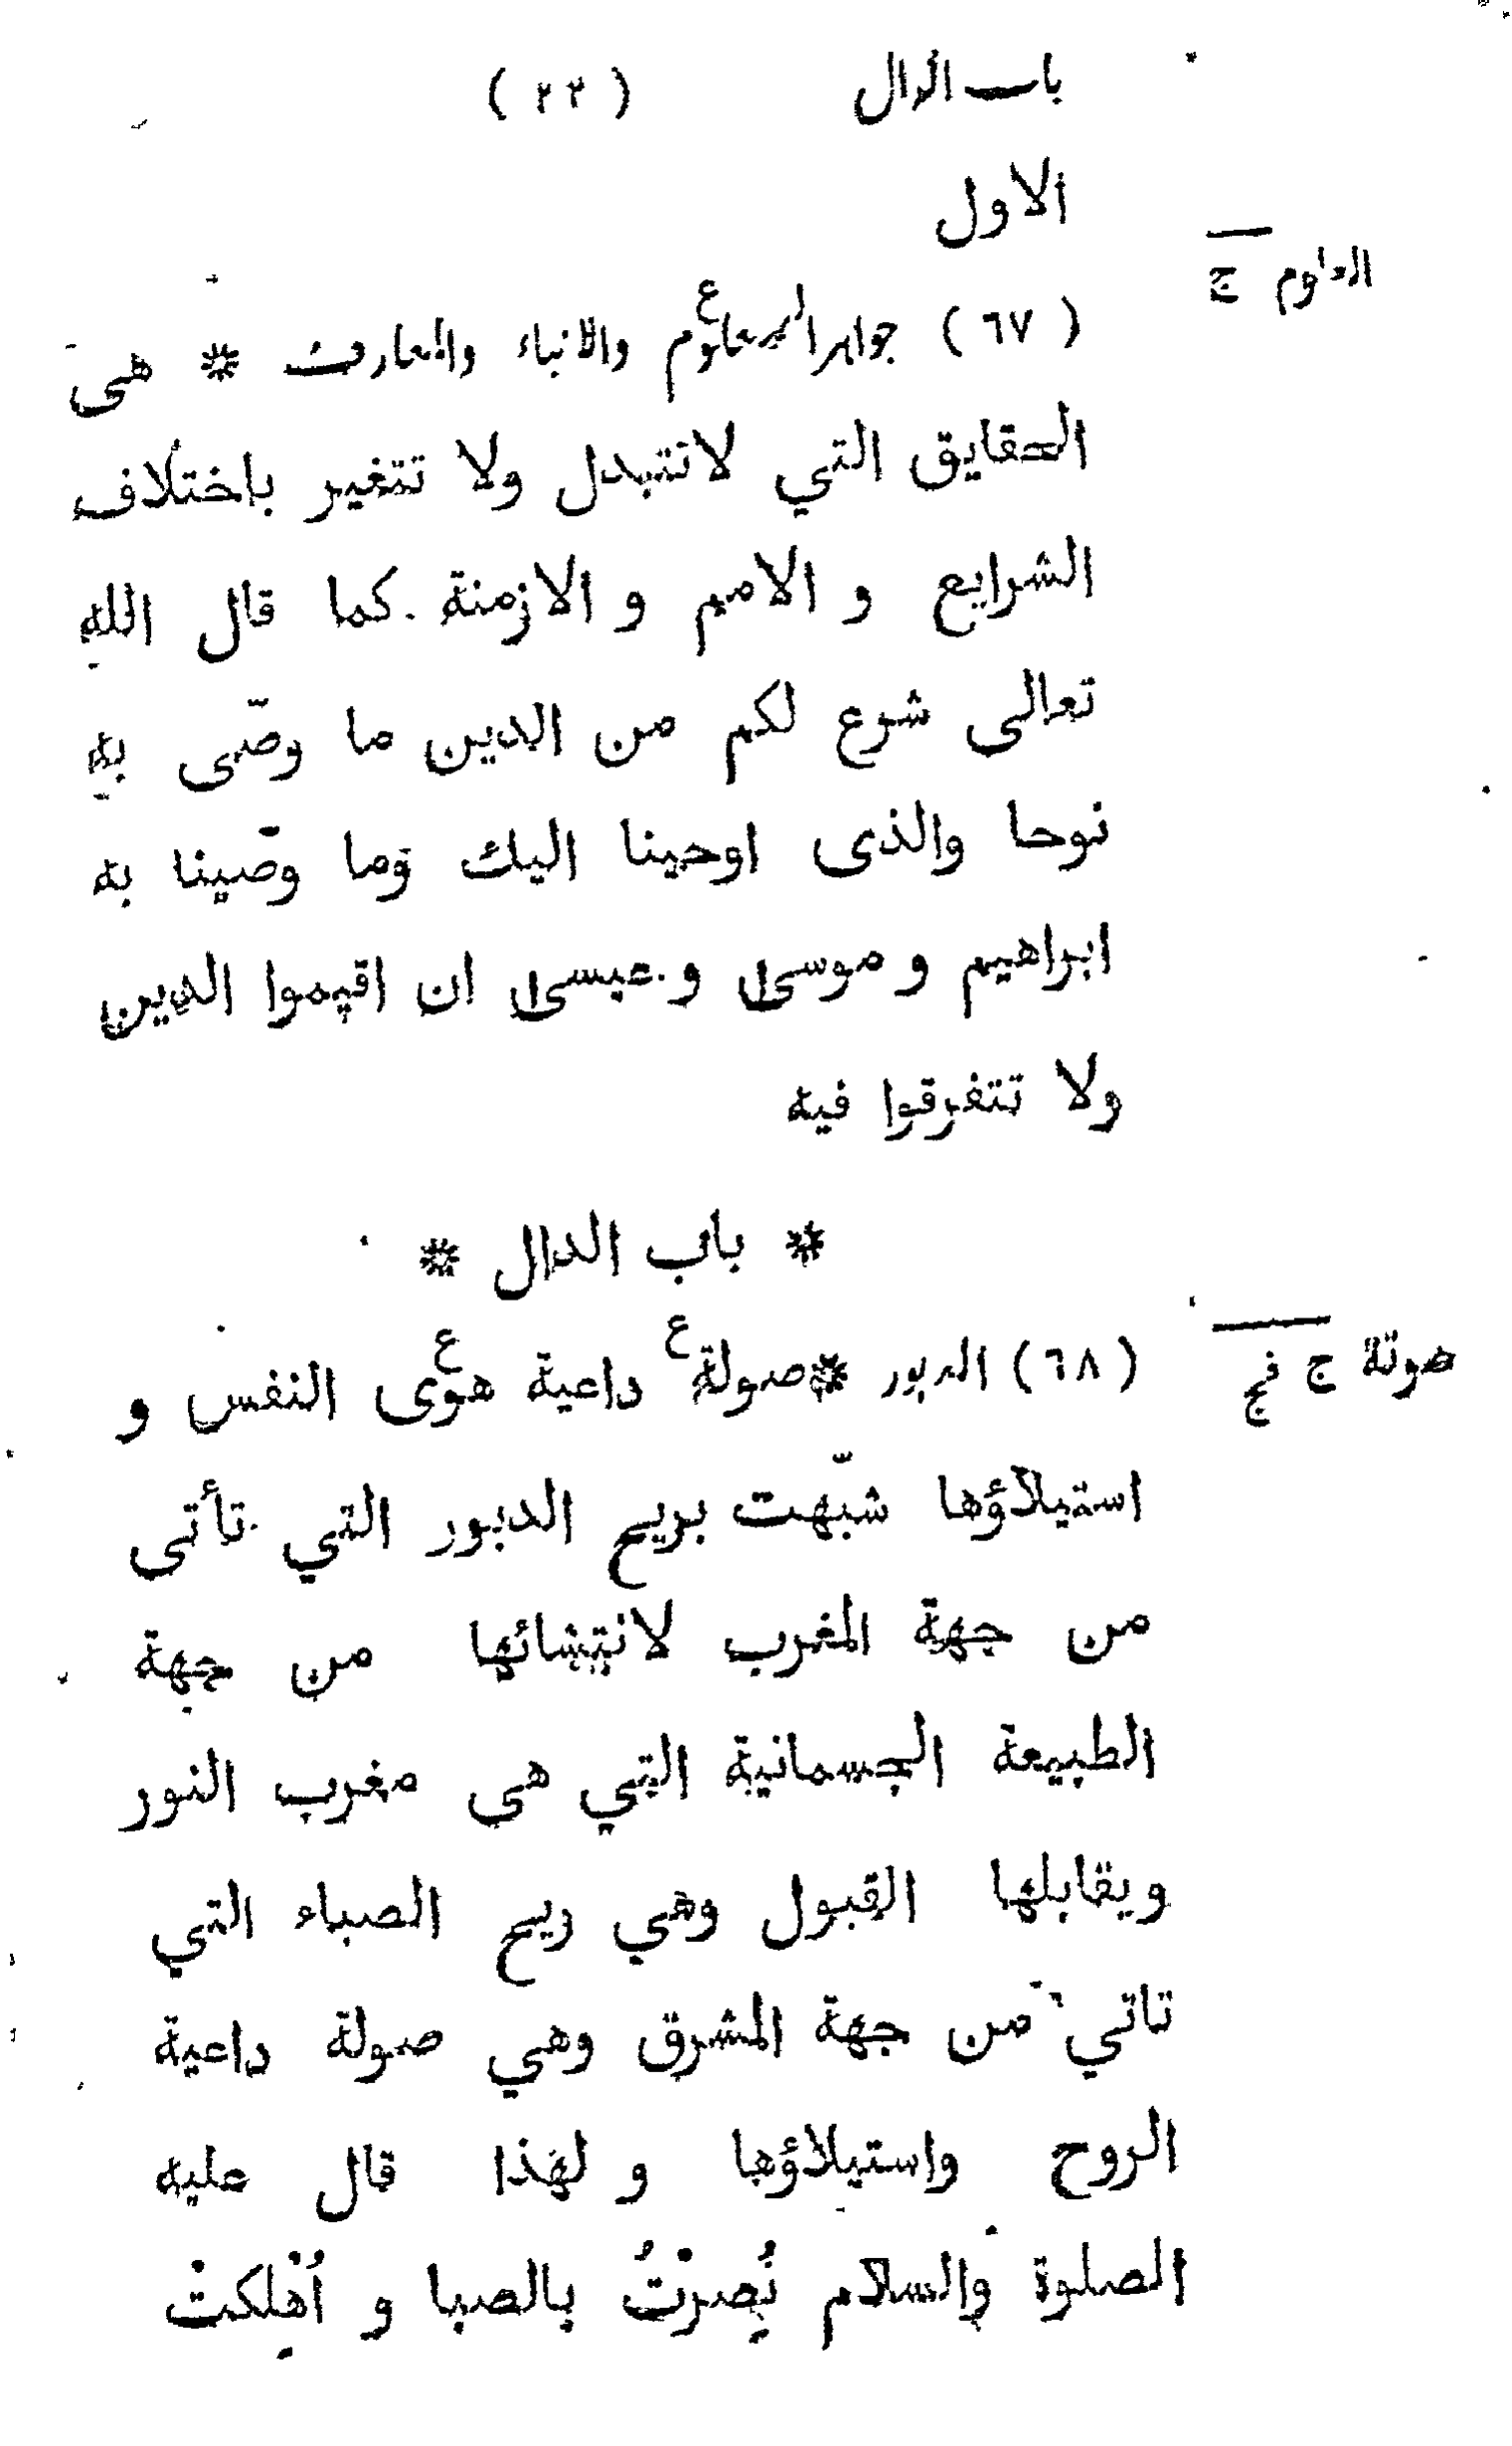 باب الدال ( ٢٢ )
الاول
العلوم ج
( ٦٧ ) جواهر العلوم ع والانباء والمعارف * هى
الحقايق التي لاتتبدل ولا تتغير باختلاف
الشرايع و الامم و الازمنة كما قال الله
تعالى شرع لكم من الدين ما وصّى به
نوحا والذى اوحينا اليك وما وصّينا به
ابراهيم و موسى و عيسى ان اقيموا الدين
ولا تتفرقوا فيه
* باب الدال *
ج
( ٦٨ ) الدبور * صولة ع داعية هوى ع النفس و
استيلاؤها شبّهت بريح الدبور التي تأتى
من جهة المغرب لانتشائها من جهة
الطبيعة الجسمانية التي هي مغرب النور
ويقابلها القبول وهي ريح الصباء التي
تاتي من جهة المشرق وهي صولة داعية
الروح واستيلاؤها و لهذا قال عليه
الصلوة والسلام نُصِرْتُ بالصبا و اُهْلِكتْ